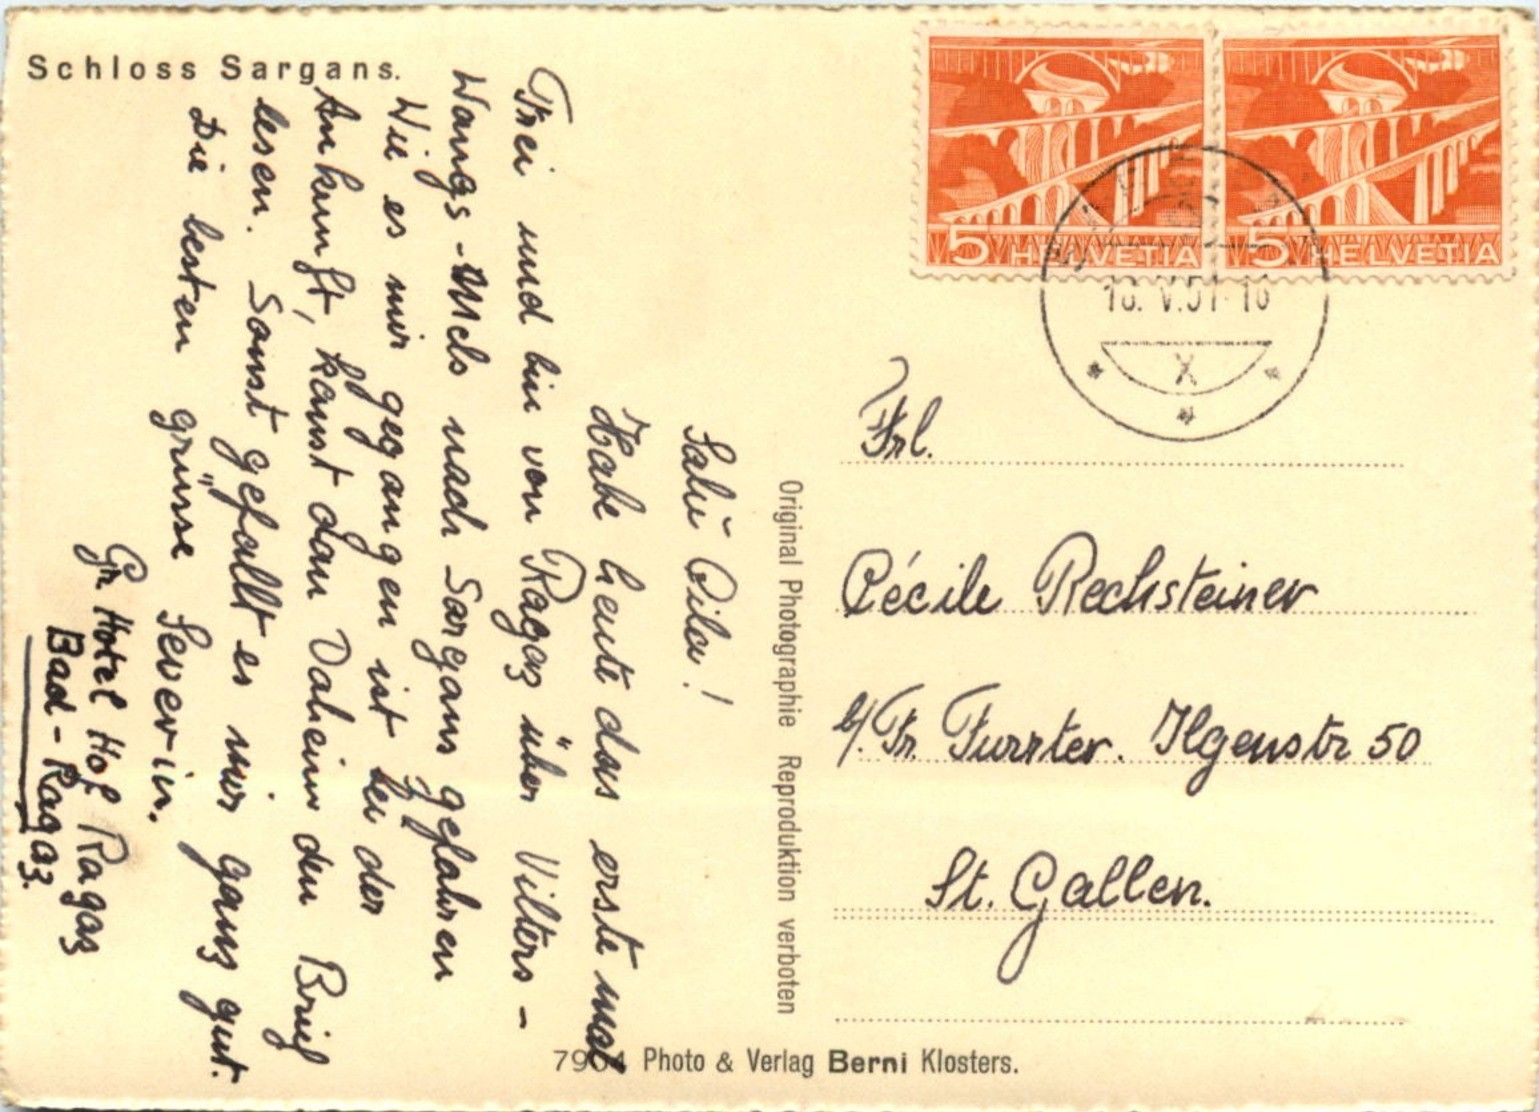 Schloss Sargans.
Salü Cila!
Habe heute das erste mal
Frei und bin von Ragaz über Vilters -
Wangs - Mels nach Sargans gefahren
Wie es mir gegangen ist bei der
Ankunft, kanst dan Daheim den Brief
lesen. Sonst gefällt es mir ganz gut.
Die besten grüsse Severin.
Gr. Hotel Hof Ragaz
Bad - Ragaz.
Original Photographie Reproduktion verboten
7904 Photo & Verlag Berni Klosters.
5 HELVETIA
5 HELVETIA
18. V. 51 - 16
X
Frl.
Cécile Rechsteiner
b/. Fr. Furrter. Ilgenstr 50
St. Gallen.